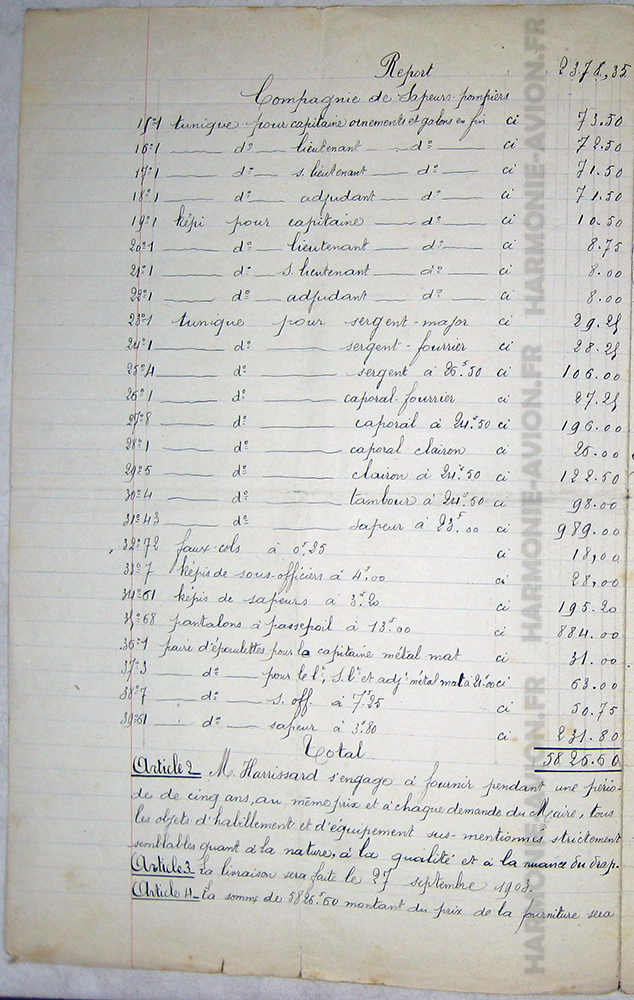 Report 2378,35
Compagnie de Sapeurs-pompiers
15º 1 tunique pour capitaine ornements et galons en fin ci 73.50
16º 1 dº lieutenant dº ci 72.50
17º 1 dº s. lieutenant dº ci 71.50
18º 1 dº adjudant dº ci 71.50
19º 1 képi pour capitaine dº ci 10.50
20º 1 dº lieutenant dº ci 8.75
21º 1 dº s. lieutenant dº ci 8.00
22º 1 dº adjudant dº ci 8.00
23º 1 tunique pour sergent-major ci 29.25
24º 1 dº sergent-fourrier ci 28.25
25º 4 dº sergent à 26f.50 ci 106.00
26º 1 dº caporal-fourrier ci 27.25
27º 8 dº caporal à 24f.50 ci 196.00
28º 1 dº caporal clairon ci 25.00
29º 5 dº clairon à 24f.50 ci 122.50
30º 4 dº tambour à 24f.50 ci 98.00
31º 43 dº sapeur à 23f.00 ci 989.00
32º 72 faux-cols à 0f.25 ci 18,00
33º 7 képis de sous-officiers à 4f.00 ci 28,00
34º 61 képis de sapeurs à 3f.20 ci 195.20
35º 68 pantalons à passepoil à 13f.00 ci 884.00
36º 1 paire d'épaulettes pour la capitaine métal mat ci 31.00
37º 3 dº pour le lt, s.lt et adjt métal mat à 21f.00 ci 63.00
38º 7 dº s. off. à 7f.25 ci 50.75
39º 61 dº sapeur à 3f.80 ci 231.80
Total 5826.60
Article 2 M. Harrissard s'engage à fournir pendant une pério-
de de cinq ans, au même prix et à chaque demande du Maire, tous
les objets d'habillement et d'équipement sus-mentionnés strictement
semblables quant à la nature, à la qualité et à la nuance du drap.
Article 3 La livraison sera faite le 27 septembre 1903.
Article 4 La somme de 5826f.60 montant du prix de la fourniture sera
HARMONIE-AVION.FR HARMONIE-AVION.FR HARMONIE-AVION.FR